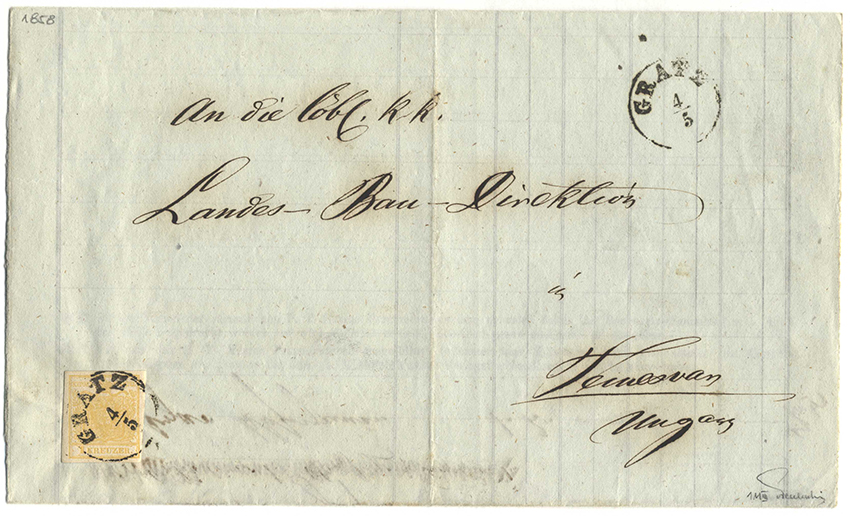 1858
GRATZ
4/5
An die löbl. k k.
Landes-Bau-Direktion
in
Temesvar
Ungarn
GRATZ
4/5
KREUZER